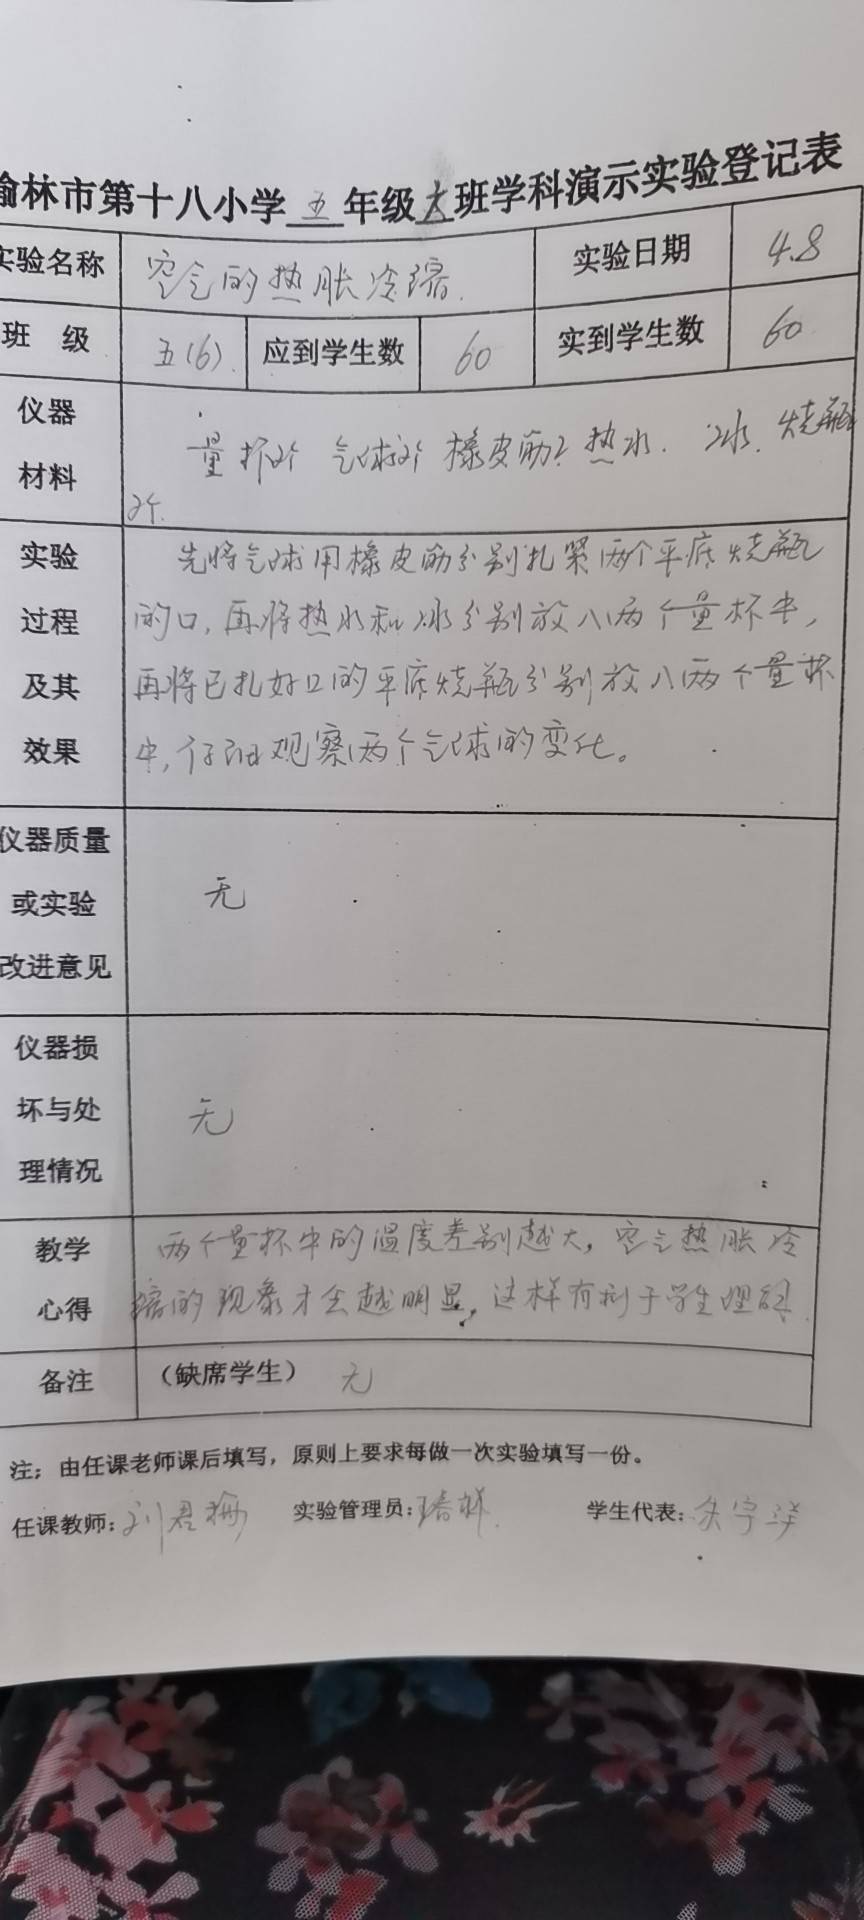 榆林市第十八小学五年级六班学科演示实验登记表
实验名称 空气的热胀冷缩. 实验日期 4.8
班 级 五(6). 应到学生数 60 实到学生数 60
仪器
材料
量杯2个 气球2个 橡皮筋2 热水. 冰. 烧瓶
2个.
实验
过程
及其
效果
先将气球用橡皮筋分别扎紧两个平底烧瓶
的口,再将热水和冰分别放入两个量杯中,
再将已扎好口的平底烧瓶分别放入两个量杯
中,仔细观察两个气球的变化。
仪器质量
或实验
改进意见
无
仪器损
坏与处
理情况
无
教学
心得
两个量杯中的温度差别越大,空气热胀冷
缩的现象才会越明显,这样有利于学生理解.
备注 (缺席学生) 无
注;由任课老师课后填写,原则上要求每做一次实验填写一份。
任课教师:刘君梅 实验管理员: 学生代表: